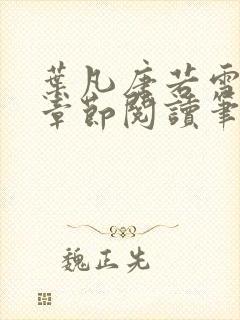 葉凡唐若雪
章節閱讀筆
魏正先